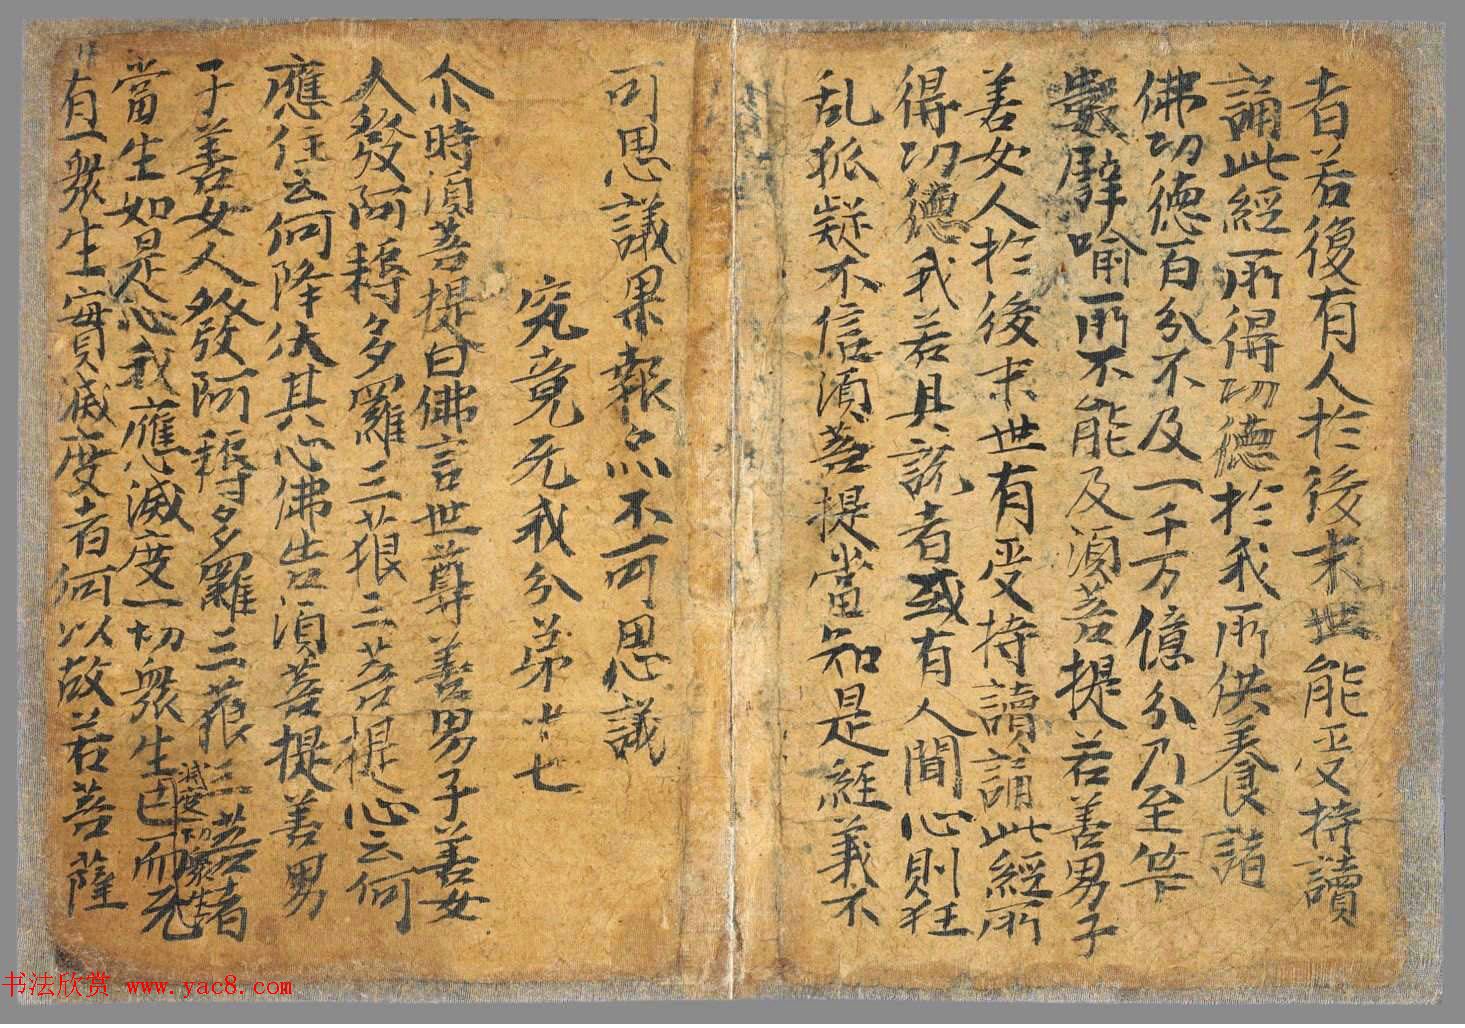 者若復有人於後末世能受持讀
誦此經所得功德於我所供養諸
佛功德百分不及一千万億分乃至筭
數譬喻所不能及須菩提若善男子
善女人於後末世有受持讀誦此經所
得功德我若具說者或有人聞心則狂
乱狐疑不信須菩提當知是經義不
可思議果報亦不可思議
究竟无我分弟十七
尒時須菩提白佛言世尊善男子善女
人發阿耨多羅三藐三菩提心云何
應住云何降伏其心佛告須菩提善男
子善女人發阿耨多羅三藐三菩者
當生如是心我應滅度一切衆生
滅度一切衆生
已而无
有一衆生實滅度者何以故若菩薩
书法欣赏 www.yac8.com